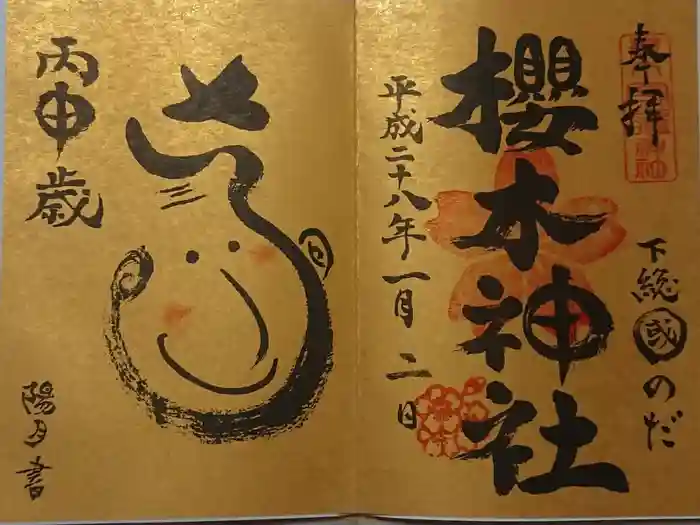 奉拝
下総國のだ
櫻木神社
平成二十八年一月二日
丙申歳
陽月書